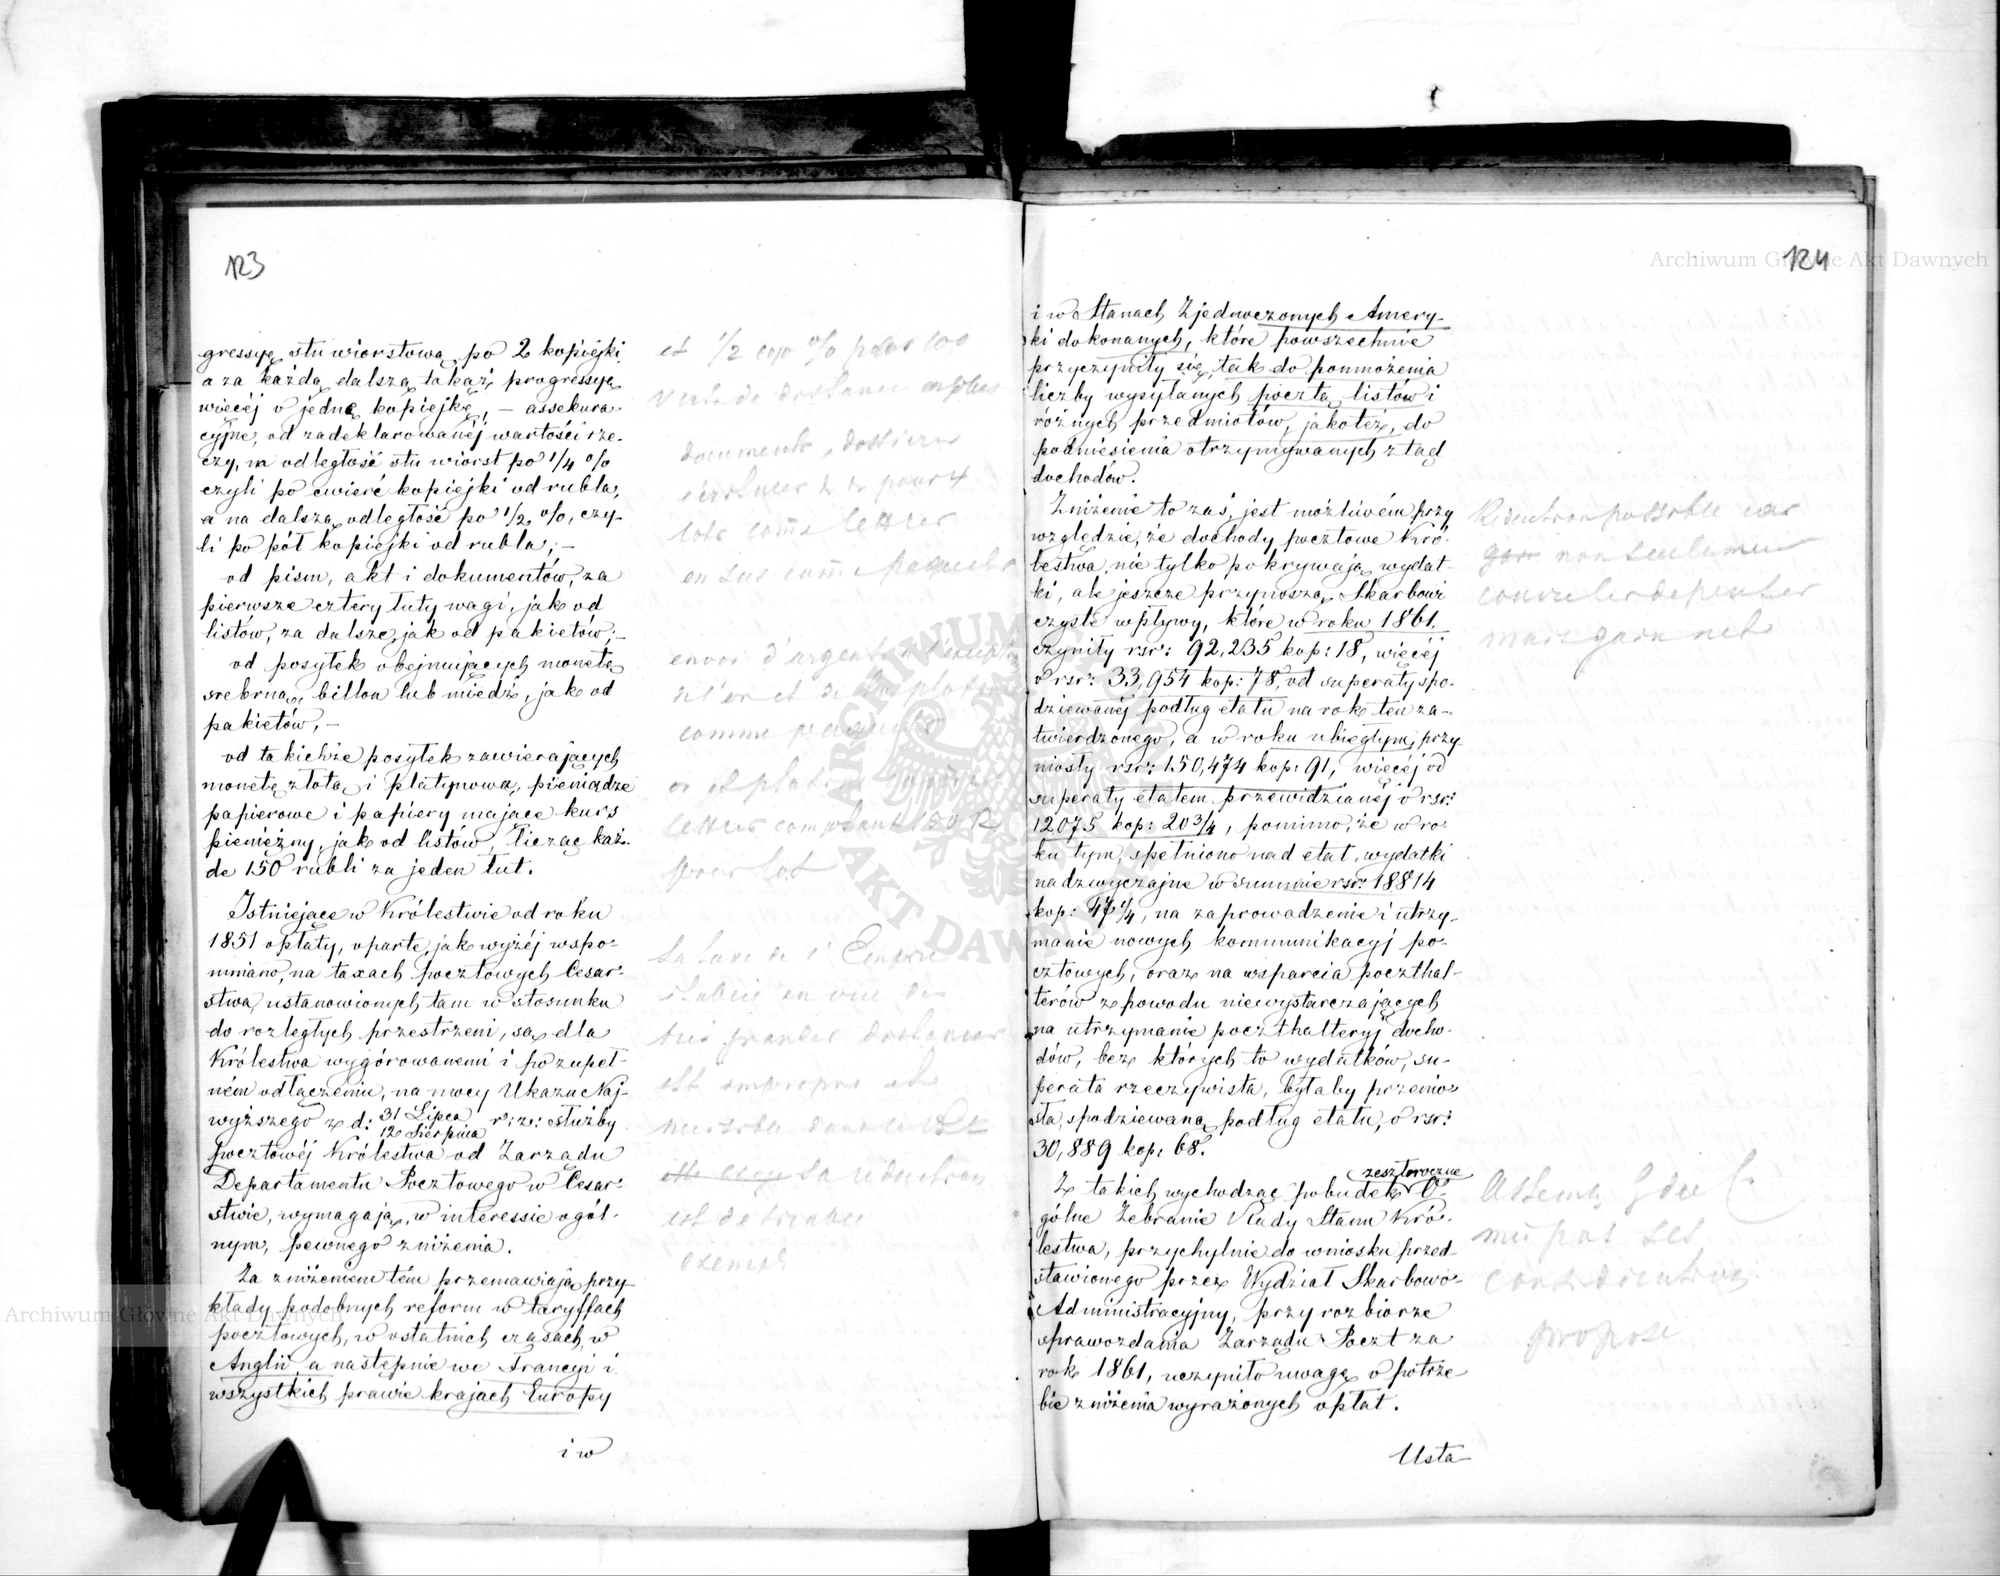 123
gressyę stu wiorstową po 2 kopiejki
a za każdą dalszą takąż progressyą
więcéj o jedną kopiejkę, — assekura-
cyjne, od zadeklarowanéj wartości rze-
czy, na odległość stu wiorst po 1/4 %
czyli po cwierć kopiejki od rubla,
a na dalszą odległość po 1/2 %, czy-
li po pół kopiejki od rubla; —
od pism, akt i dokumentów, za
pierwsze cztery łuty wagi, jak od
listów, za dalsze, jak od pakietów; —
od posyłek obejmujących monetę
srebrną, billon lub miedź, jak od
pakietów, —
od takichże posyłek zawierających
monetę złotą i platynową, pieniądze
papierowe i papiery mające kurs
pieniężny, jak od listów, licząc każ-
de 150 rubli za jeden łut.
Istniejące w Królestwie od roku
1851 opłaty, oparte, jak wyżéj wspo-
mniano, na taxach pocztowych Cesar-
stwa, ustanowionych tam w stosunku
do rozległych przestrzeni, są dla
Królestwa wygórowanemi i po zupeł-
ném odłączeniu, na mocy Ukazu Naj-
wyższego z d: 31 Lipca / 12 Sierpnia r: z: służby
pocztowéj Królestwa od Zarządu
Departamentu Pocztowego w Cesar-
stwie, wymagają, w interessie ogól-
nym, pewnego zniżenia.
Za zniżeniem tém przemawiają przy-
kłady podobnych reform w taryffach
pocztowych, w ostatnich czasach, w
Anglii, a następnie we Francyi i
wszystkich prawie krajach Europy
i w
et 1/2 cop % pour 100
documents, dossiers
lots comme lettres
en sus comme paquets
envoi d'argent
comme paquets
or et platine
lettres comptant 150 R
pour lot
La taxe de l'Empire
établie en vue de
très grandes distances
est impropre et
la réduction
124
i w Stanach Zjednoczonych Amery-
ki dokonanych, które powszechnie
przyczyniły się, tak do pomnożenia
liczby wysyłanych pocztą listów i
różnych przedmiotów, jakotéż, do
podniesienia otrzymywanych ztąd
dochodów.
Zniżenie to zaś, jest możliwém przy
względzie, że dochody pocztowe Kró-
lestwa, nie tylko pokrywają wydat-
ki, ale jeszcze przynoszą Skarbowi
czyste wpływy, które w roku 1861.
czyniły rsr: 92,235 kop: 18, więcéj
o rsr: 33,954 kop: 78, od superaty spo-
dziewanéj podług etatu na rok ten za-
twierdzonego, a w roku ubiegłym, przy-
niosły rsr: 150,474 kop: 91, więcéj od
superaty etatem przewidzianéj o rsr:
12075 kop: 20 3/4, pomimo, że w ro-
ku tym, spełniono nad etat, wydatki
nadzwyczajne w summie rsr: 18814
kop: 47 1/4, na zaprowadzenie i utrzy-
manie nowych kommunikacyj po-
cztowych, oraz na wsparcia poczthal-
terów z powodu niewystarczających
na utrzymanie poczthalteryj docho-
dów, bez których to wydatków, su-
perata rzeczywista, byłaby przenio-
sła, spodziewaną podług etatu, o rsr:
30,889 kop: 68.
Z takich wychodząc pobudek zeszłoroczne O-
gólne Zebranie Rady Stanu Kró-
lestwa, przychylnie do wniosku przed-
stawionego przez Wydział Skarbowo-
Administracyjny, przy rozbiorze
sprawozdania Zarządu Poczt za
rok 1861, uczyniło uwagę o potrze-
bie zniżenia wyrażonych opłat.
Usta
Réduction possible car
non seulement
couvre les dépenses
mais gain net
mu par ses
considérations
propose
Archiwum Główne Akt Dawnych
Archiwum Główne Akt Dawnych
ARCHIWUM
AKT DAWN